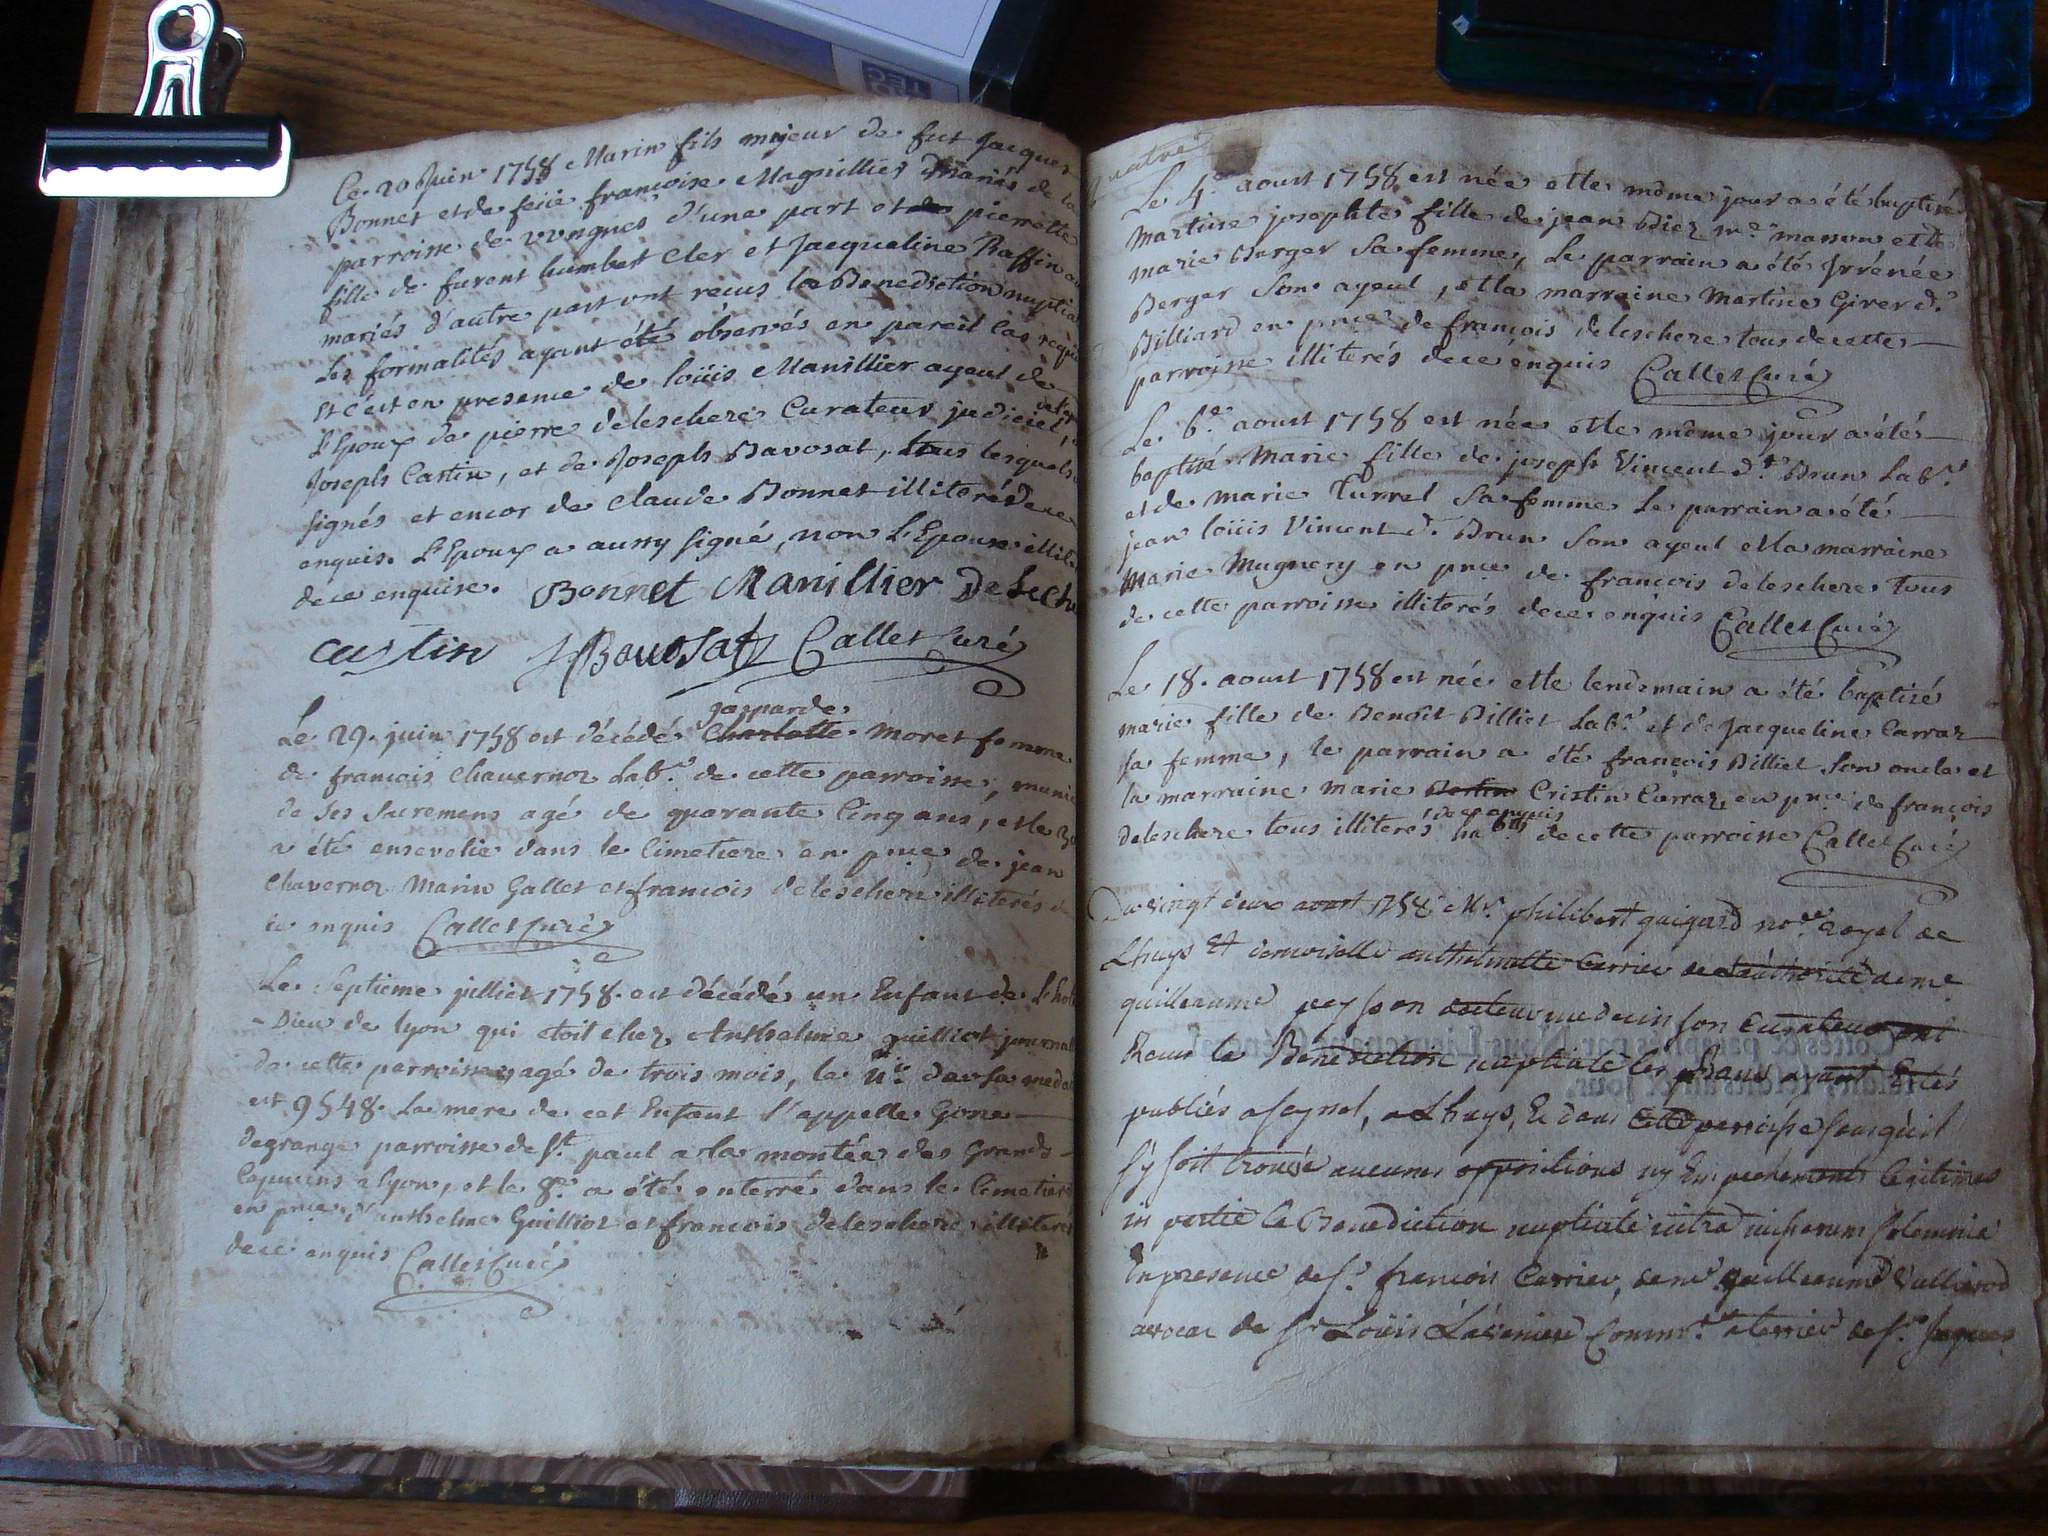 Ce 20 Juin 1758 Marin fils majeur de fut Jacques
Bonnet et de feüe françoise Magnillier mariés de la
parroisse de vongnes d'une part et pierrette
fille de furent humbert Cler et Jacqueline Raffin
mariés d'autre part ont recus la Benediction nuptiale
Les formalités ayant été observés en pareil cas requis
Et c'est en presence de loüis Manillier ayeul de
l'Epoux de pierre deleschere Curateur judiciel,
Joseph Castin, et de Joseph Bavosat, tous lesquels
signés et encor de claude Bonnet illiterés de ce
enquis. L'Epoux a aussy signé, non L'Epouse illit.
de ce enquise. Bonnet Manillier Delesche
castin JBavosat Callet Curé
gasparde
Le 29. juin 1758 est décédé Charlotte Moret femme
de francois Chavernoz Lab.r de cette parroisse, munie
de ses sacremens agé de quarante cinq ans, et le 30
a été ensevelie dans le Cimetiere en pnce de jean
Chavernoz Marin Gallet et francois deleschere illiterés de
ce enquis Callet Curé
Le septieme juillet 1758. est décédé un Enfant de L'hotel
- Dieu de lyon qui etoit chez Anthelme guilliot journal
de cette parroisse, agé de trois mois, le n.° de sa medal
est 9548. La mere de cet Enfant s'appelle Gone
degrange parroisse de St. paul a la montée des Grands
Capucins a lyon, et le 8.e a été enterré dans le Cimetiere
en pnce d'anthelme Guilliot et francois deleschere illiteres
de ce enquis Callet Curé
quatre
Le 4.e aoust 1758 est née et le même jour a été baptisé
Martine josephte fille de jean Biez m.e masson et de
marie Berger Sa femme, Le parrain a été Irrénée
Berger Son ayeul, et la marraine Martine Girer d.t
Billiard en pnce de francois deleschere tous de cette
parroisse illiterés de ce enquis Callet Curé
Le 6.e aoust 1758 est née et le même jour a étés
baptisé Marie fille de joseph Vincent d.t Brun Lab.r
et de marie Turrel Sa femme Le parrain a été
jean loüis Vincent d.t Brun Son ayeul et la marraine
Marie Mugnery en pnce de francois deleschere Tous
de cette parroisse illiterés de ce enquis Callet Curé
Le 18. aoust 1758 est née et le lendemain a été baptisé
marie fille de Benoît Billiet Lab.r et de Jacqueline Carraz
sa femme, le parrain a été françois Billiet Son oncle et
la marraine marie Bertin Cristin Carraz, en pnce de françois
de ce enquis
deleschere tous illiterés hab.ts de cette parroisse Callet Curé
Du vingt deux aout 1758 Mr. philibert guigard no.re royal de
Lhuys Et demoiselle anthelmette Carrier de l'authorité de me
guilleaume peysson docteur medecin son Curateur ont
Recus la Benediction nuptiale les Bans ayant Estés
publiés a seyssel, a Lhuys, Et dans cette parroisse sans qu'il
s'y soit trouvée aucunes oppositions ny Empechements Legitimes
in pertie la Benediction nuptiale intra missarum solemnia
En presence de Sr. francois Carrier, de me guilleaume Vallierod
avocat de Sr Loüis Commre. a terrier de Sr. Jaques